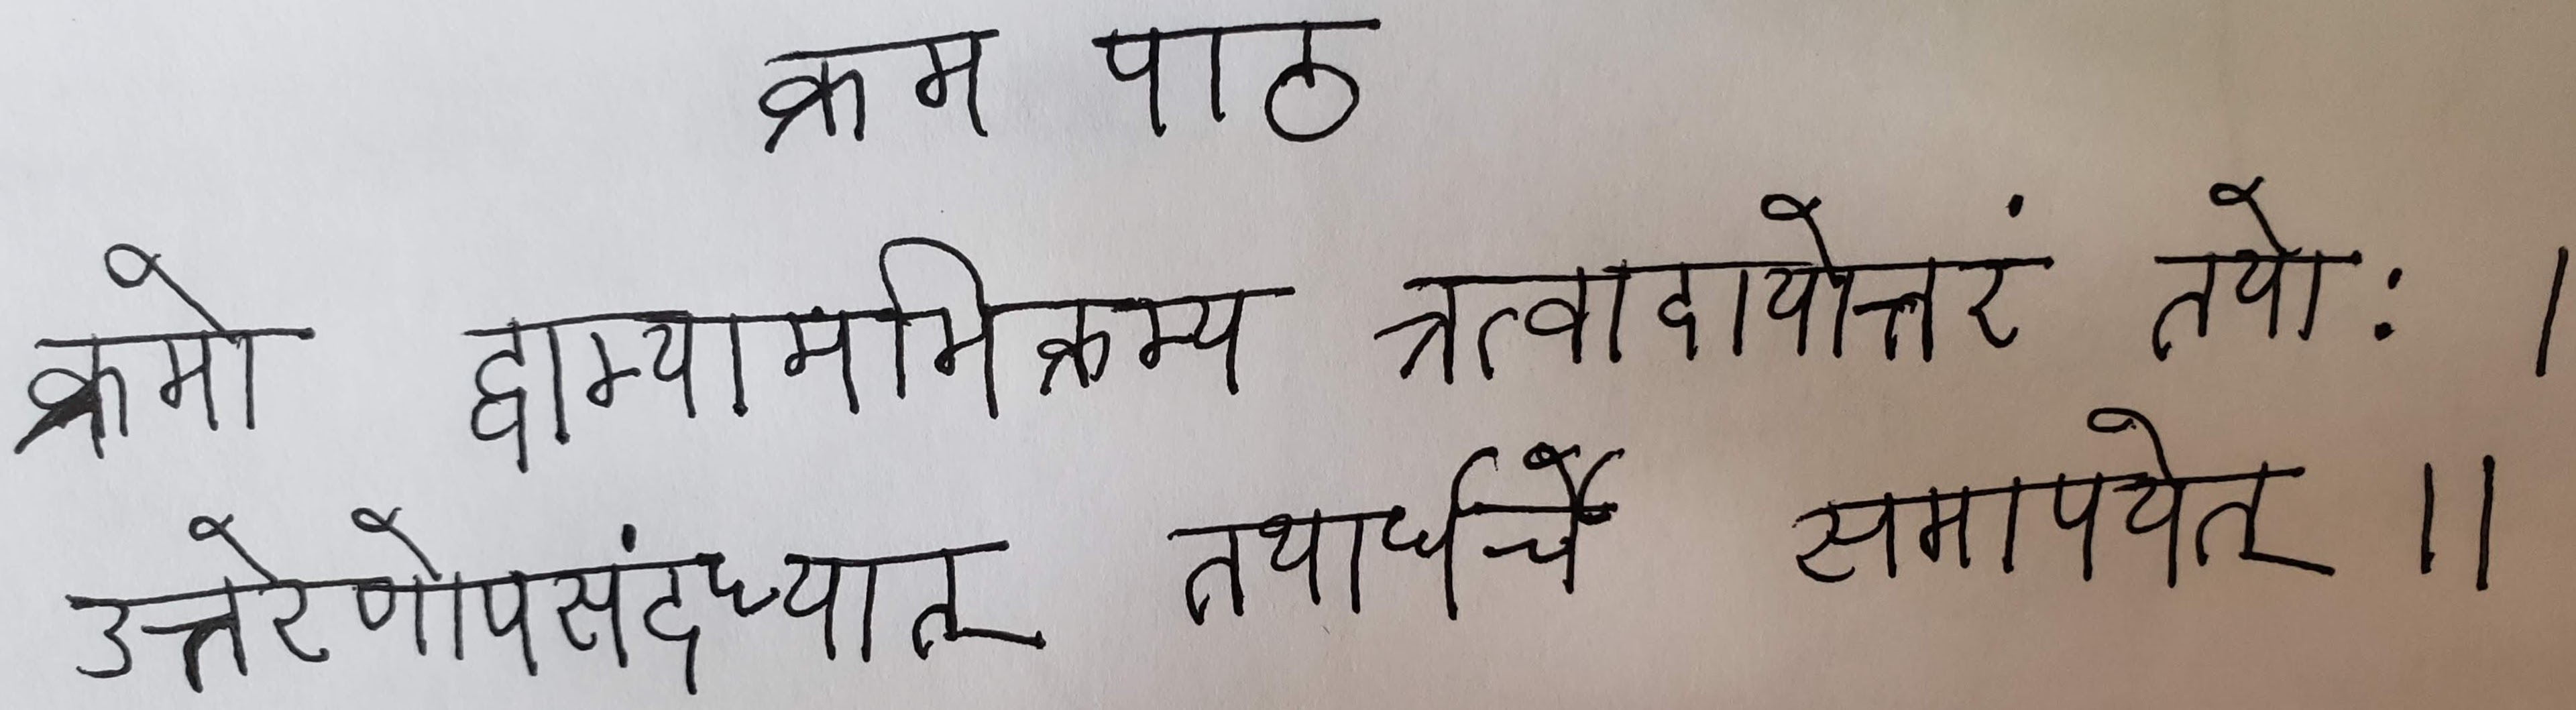 क्रम पाठ
क्रमो द्वाभ्यामभिक्रम्य त्रत्वादायोत्तरं तयोः ।
उत्तरेणोपसंदध्यात् तथार्धर्चे समापयेत् ॥